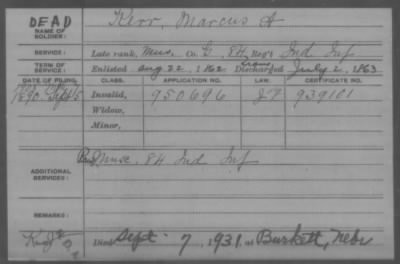 DEAD
NAME OF SOLDIER: Kerr, Marcus A
SERVICE: Late rank, Mus. Co. G, 84 Reg't Ind Inf
TERM OF SERVICE: Enlisted Aug 22, 1862 Discharged July 2, 1863
DATE OF FILING. CLASS. APPLICATION NO. LAW. CERTIFICATE NO.
1890. Sept 5 Invalid, 950696 939101
Widow,
Minor,
ADDITIONAL SERVICES: Muse. 84 Ind Inf
REMARKS:
Died Sept 7, 1931, at Burkett, Nebr